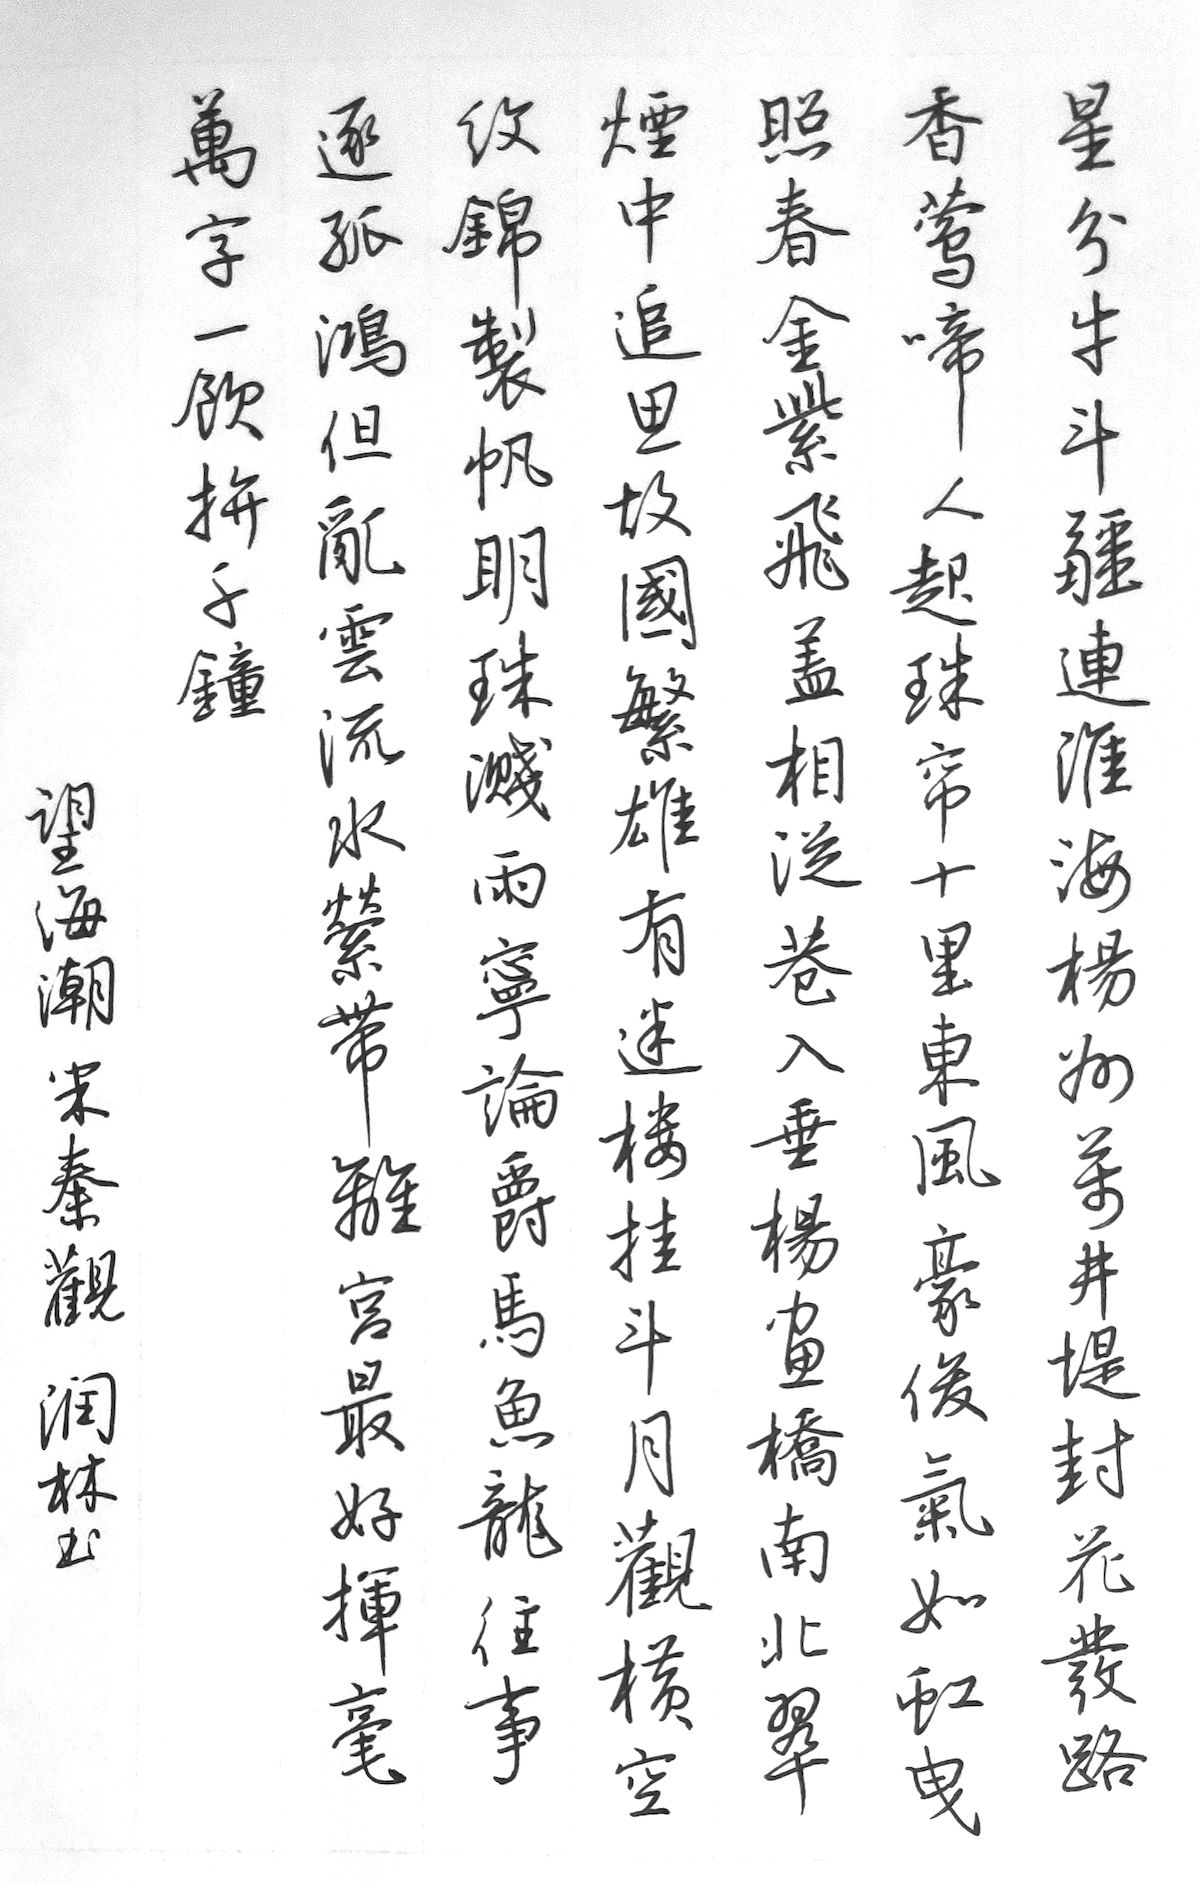 星分牛斗疆連淮海楊州萬井堤封花發路
香莺啼人起珠帘十里東風豪俊氣如虹曳
照春金紫飛盖相從巷入垂楊畫橋南北翠
煙中追思故國繁雄有迷楼挂斗月觀横空
紋錦製帆明珠濺雨寧論爵馬魚龍往事
逐孤鴻但亂雲流水縈带離宫最好揮毫
萬字一飲拚千鐘
望海潮宋秦觀润林书